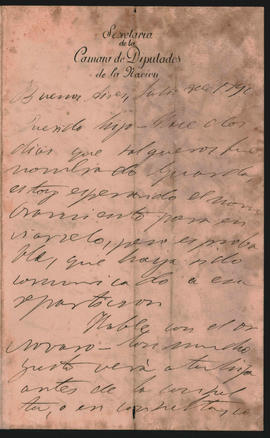 Secretaría
de la
Camara de Diputados
de la Nacion
Buenos Aires, Julio de 190
Querido hijo - Hace dos
dias que salgueros fue
nombrado Guarda
estoy esperando el nom
bramiento para en
viarselo, pero es proba
ble, que haya sido
comunicado a esa
reparticion
Hable con el
Novaro - con mucho
gusto verá a tu hija
antes de la consul
ta, o en consulta